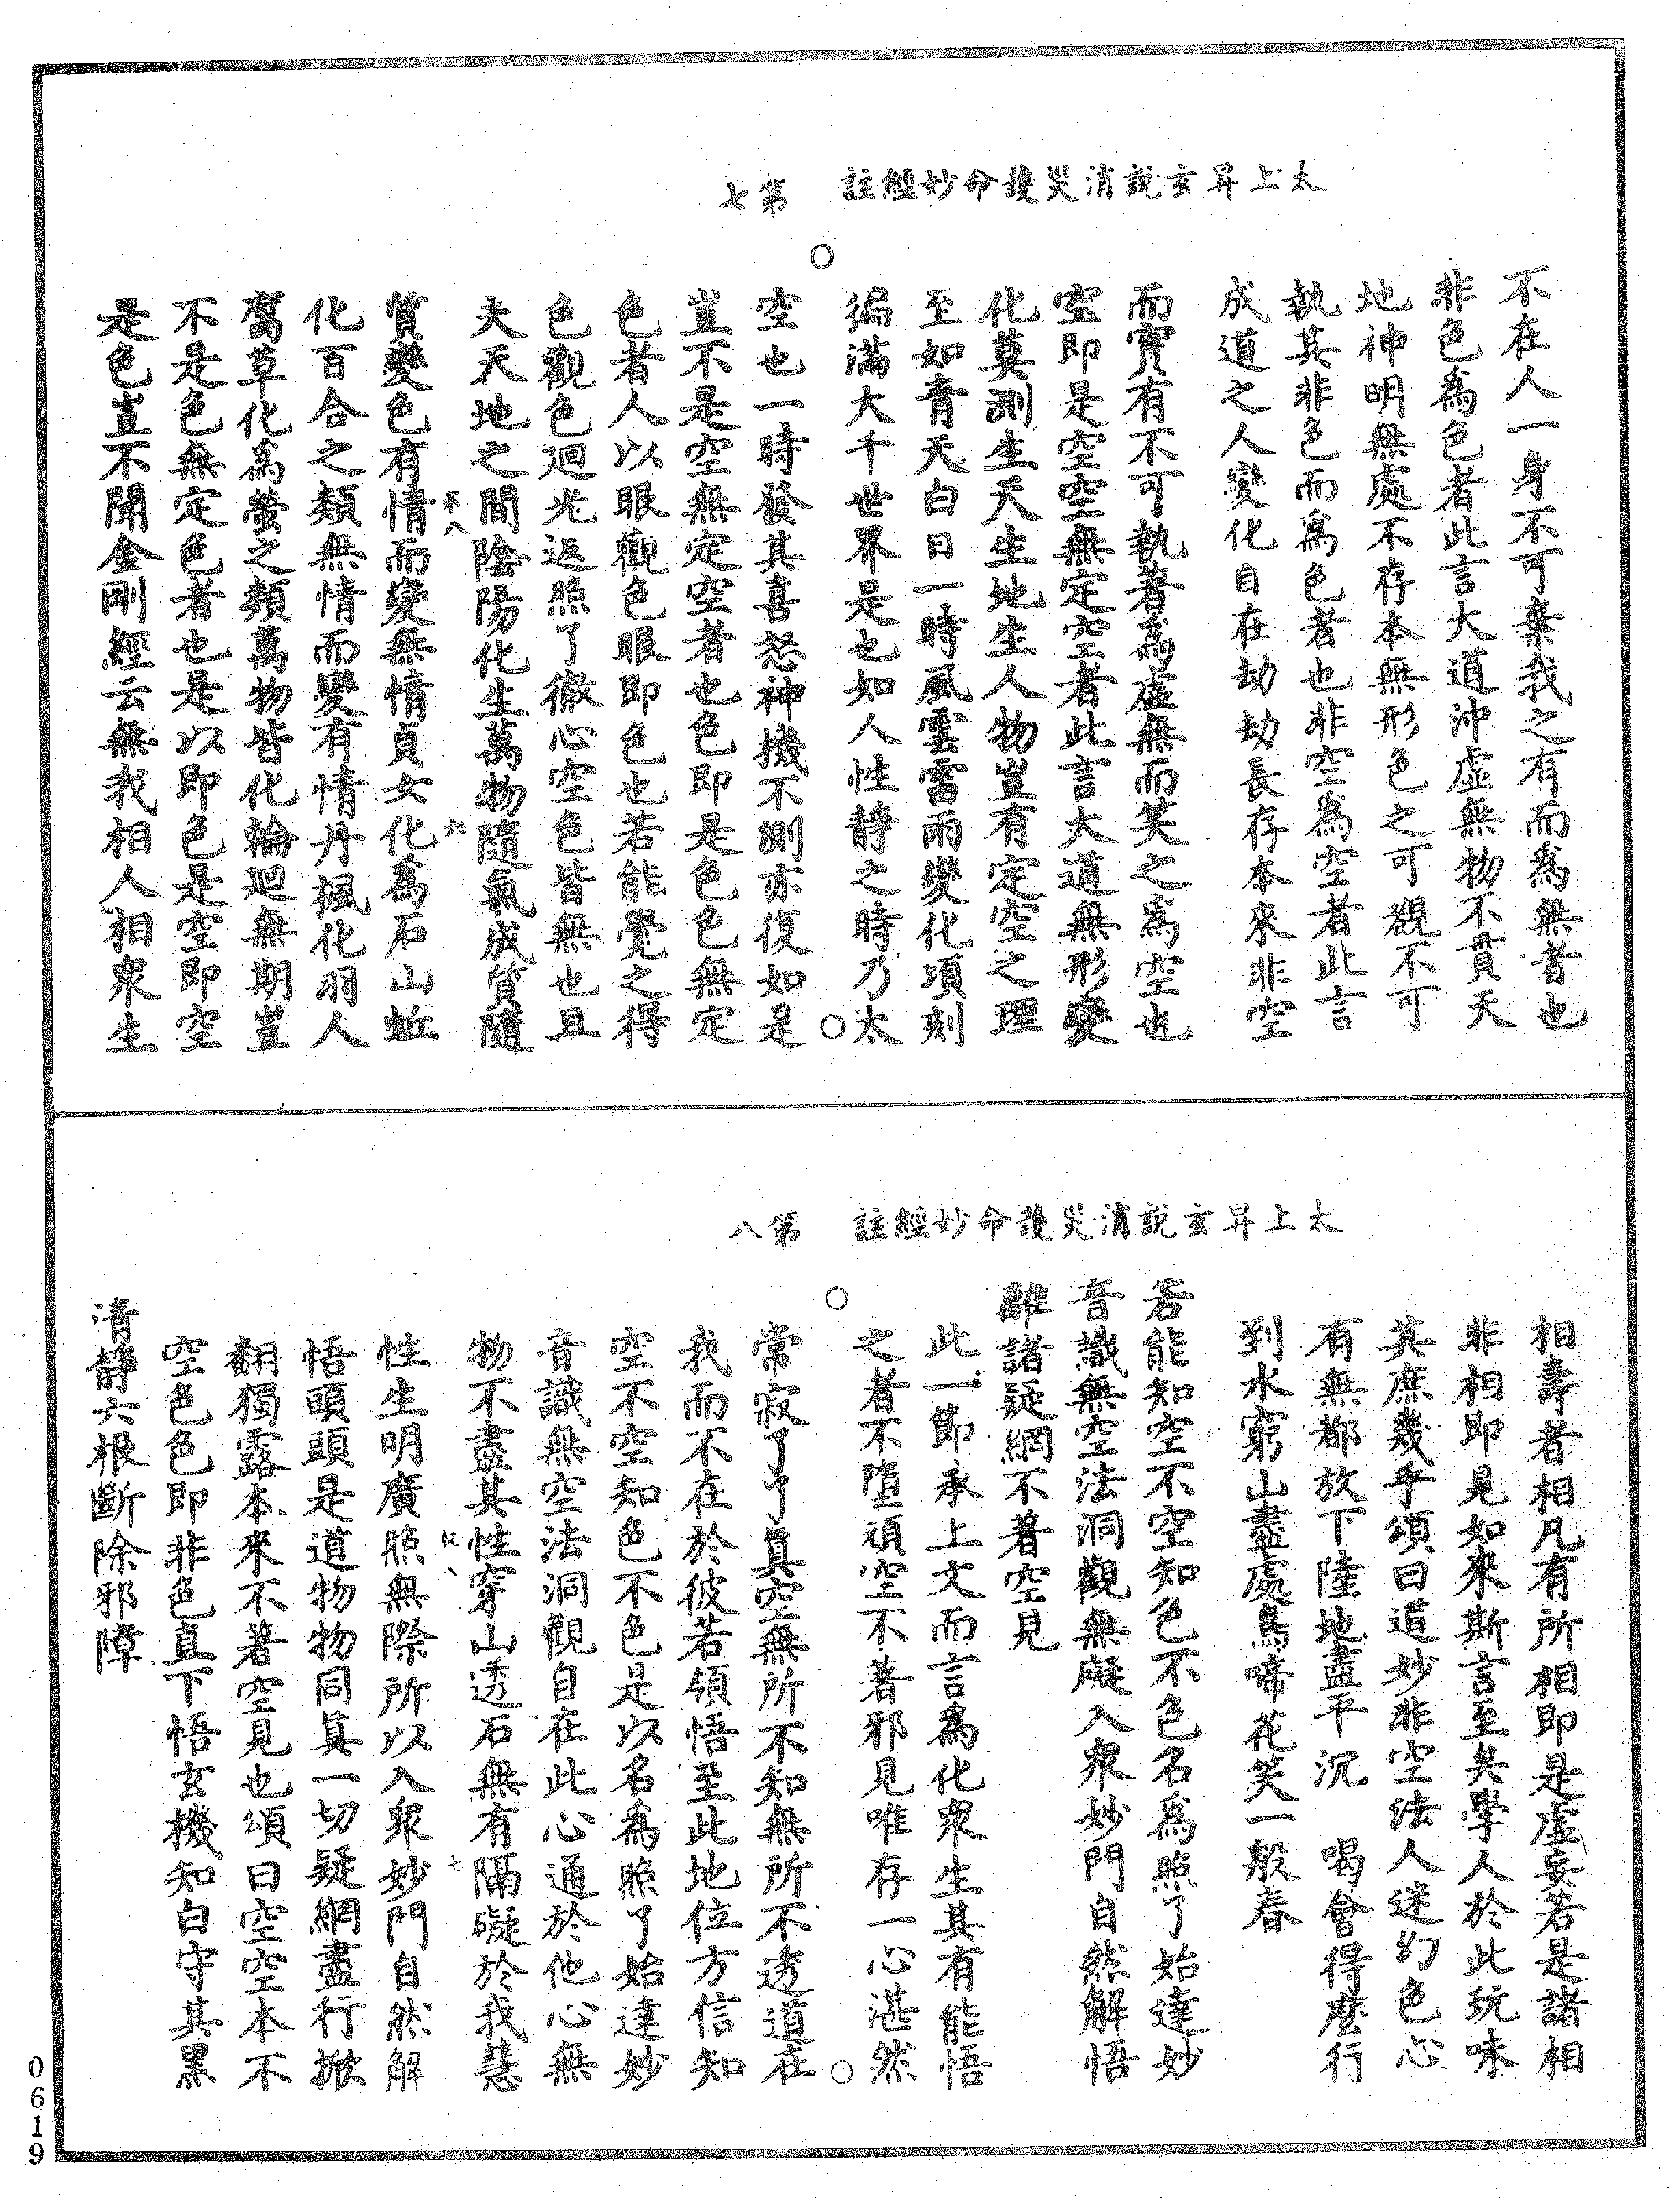 太上昇玄說消災護命妙經註　第七
不在人一身不可棄我之有而為無者也
非色為色者此言大道沖虛無物不貫天
地神明無處不存本無形色之可觀不可
執其非色而為色者也非空為空者此言
成道之人變化自在劫劫長存本來非空
而實有不可執著為虛無而笑之為空也
空即是空空無定空者此言大道無形變
化莫測生天生地生人物豈有定空之理
至如青天白日一時風雲雷雨變化頃刻
徧滿大千世界是也如人性靜之時乃太
空也一時發其喜怒神機不測亦復如是
豈不是空無定空者也色即是色色無定
色者人以眼觀色眼即色也若能覺之得
色觀色迴光返照了徹心空色皆無也且
夫天地之間陰陽化生萬物隨氣成質隨
質變色有情而變無情貞女化為石山蚯
化百合之類無情而變有情丹楓化羽人
腐草化為螢之類萬物皆化輪迴無期豈
不是色無定色者也是以即色是空即空
是色豈不聞金剛經云無我相人相衆生
太上昇玄說消災護命妙經註　第八
相壽者相凡有所相即是虛妄若是諸相
非相即見如來斯言至矣學人於此玩味
其庶幾乎頌曰道妙非空法人迷幻色心
有無都放下陸地盡平沉　喝會得麼行
到水窮山盡處鳥啼花笑一般春
若能知空不空知色不色名為照了始達妙
音識無空法洞觀無礙入衆妙門自然解悟
離諸疑網不著空見
此一節承上文而言為化衆生其有能悟
之者不墮頑空不著邪見唯存一心湛然
常寂了了真空無所不知無所不透道在
我而不在於彼若領悟至此地位方信知
空不空知色不色是以名為照了始達妙
音識無空法洞觀自在此心通於他心無
物不盡其性穿山透石無有隔礙於我慧
性生明廣照無際所以入衆妙門自然解
悟頭頭是道物物同真一切疑網盡行掀
翻獨露本來不著空見也頌曰空空本不
空色色即非色直下悟玄機知白守其黑
清靜六根斷除邪障
0619